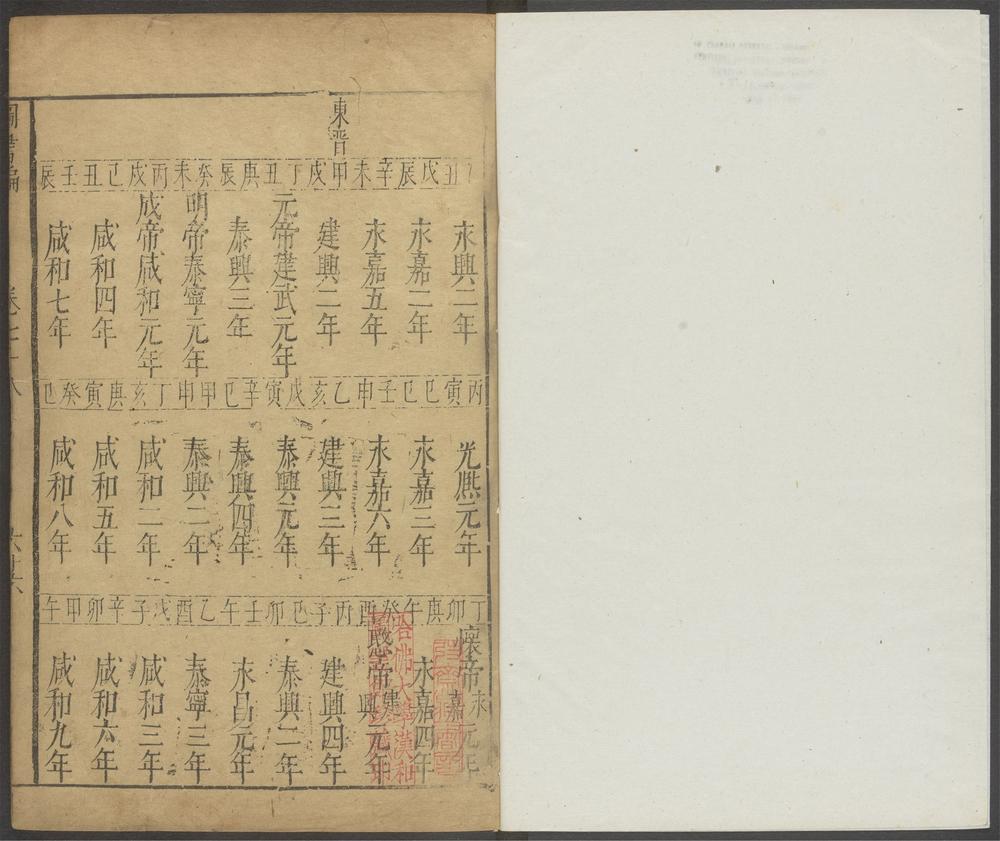 東晉
乙丑戊辰辛未甲戌丁丑庚辰癸未丙戌己丑壬辰
永興二年
永嘉二年
永嘉五年
建興二年
元帝建武元年
泰興三年
明帝泰寧元年
成帝咸和元年
咸和四年
咸和七年
丙寅己巳壬申乙亥戊寅辛巳甲申丁亥庚寅癸巳
光熈元年
永嘉三年
永嘉六年
建興三年
泰興元年
泰興四年
泰興二年
咸和二年
咸和五年
咸和八年
丁卯庚午癸酉丙子己卯壬午乙酉戊子辛卯甲午
懷帝永嘉元年
永嘉四年
愍帝建興元年
建興四年
泰興二年
永昌元年
泰寧三年
咸和三年
咸和六年
咸和九年
圖書編
哈佛大學漢和